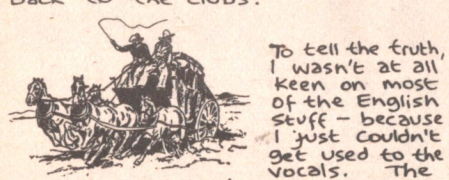 back to the clubs.
To tell the truth,
I wasn't at all
keen on most
of the English
stuff – because
I just couldn't
get used to the
vocals. The